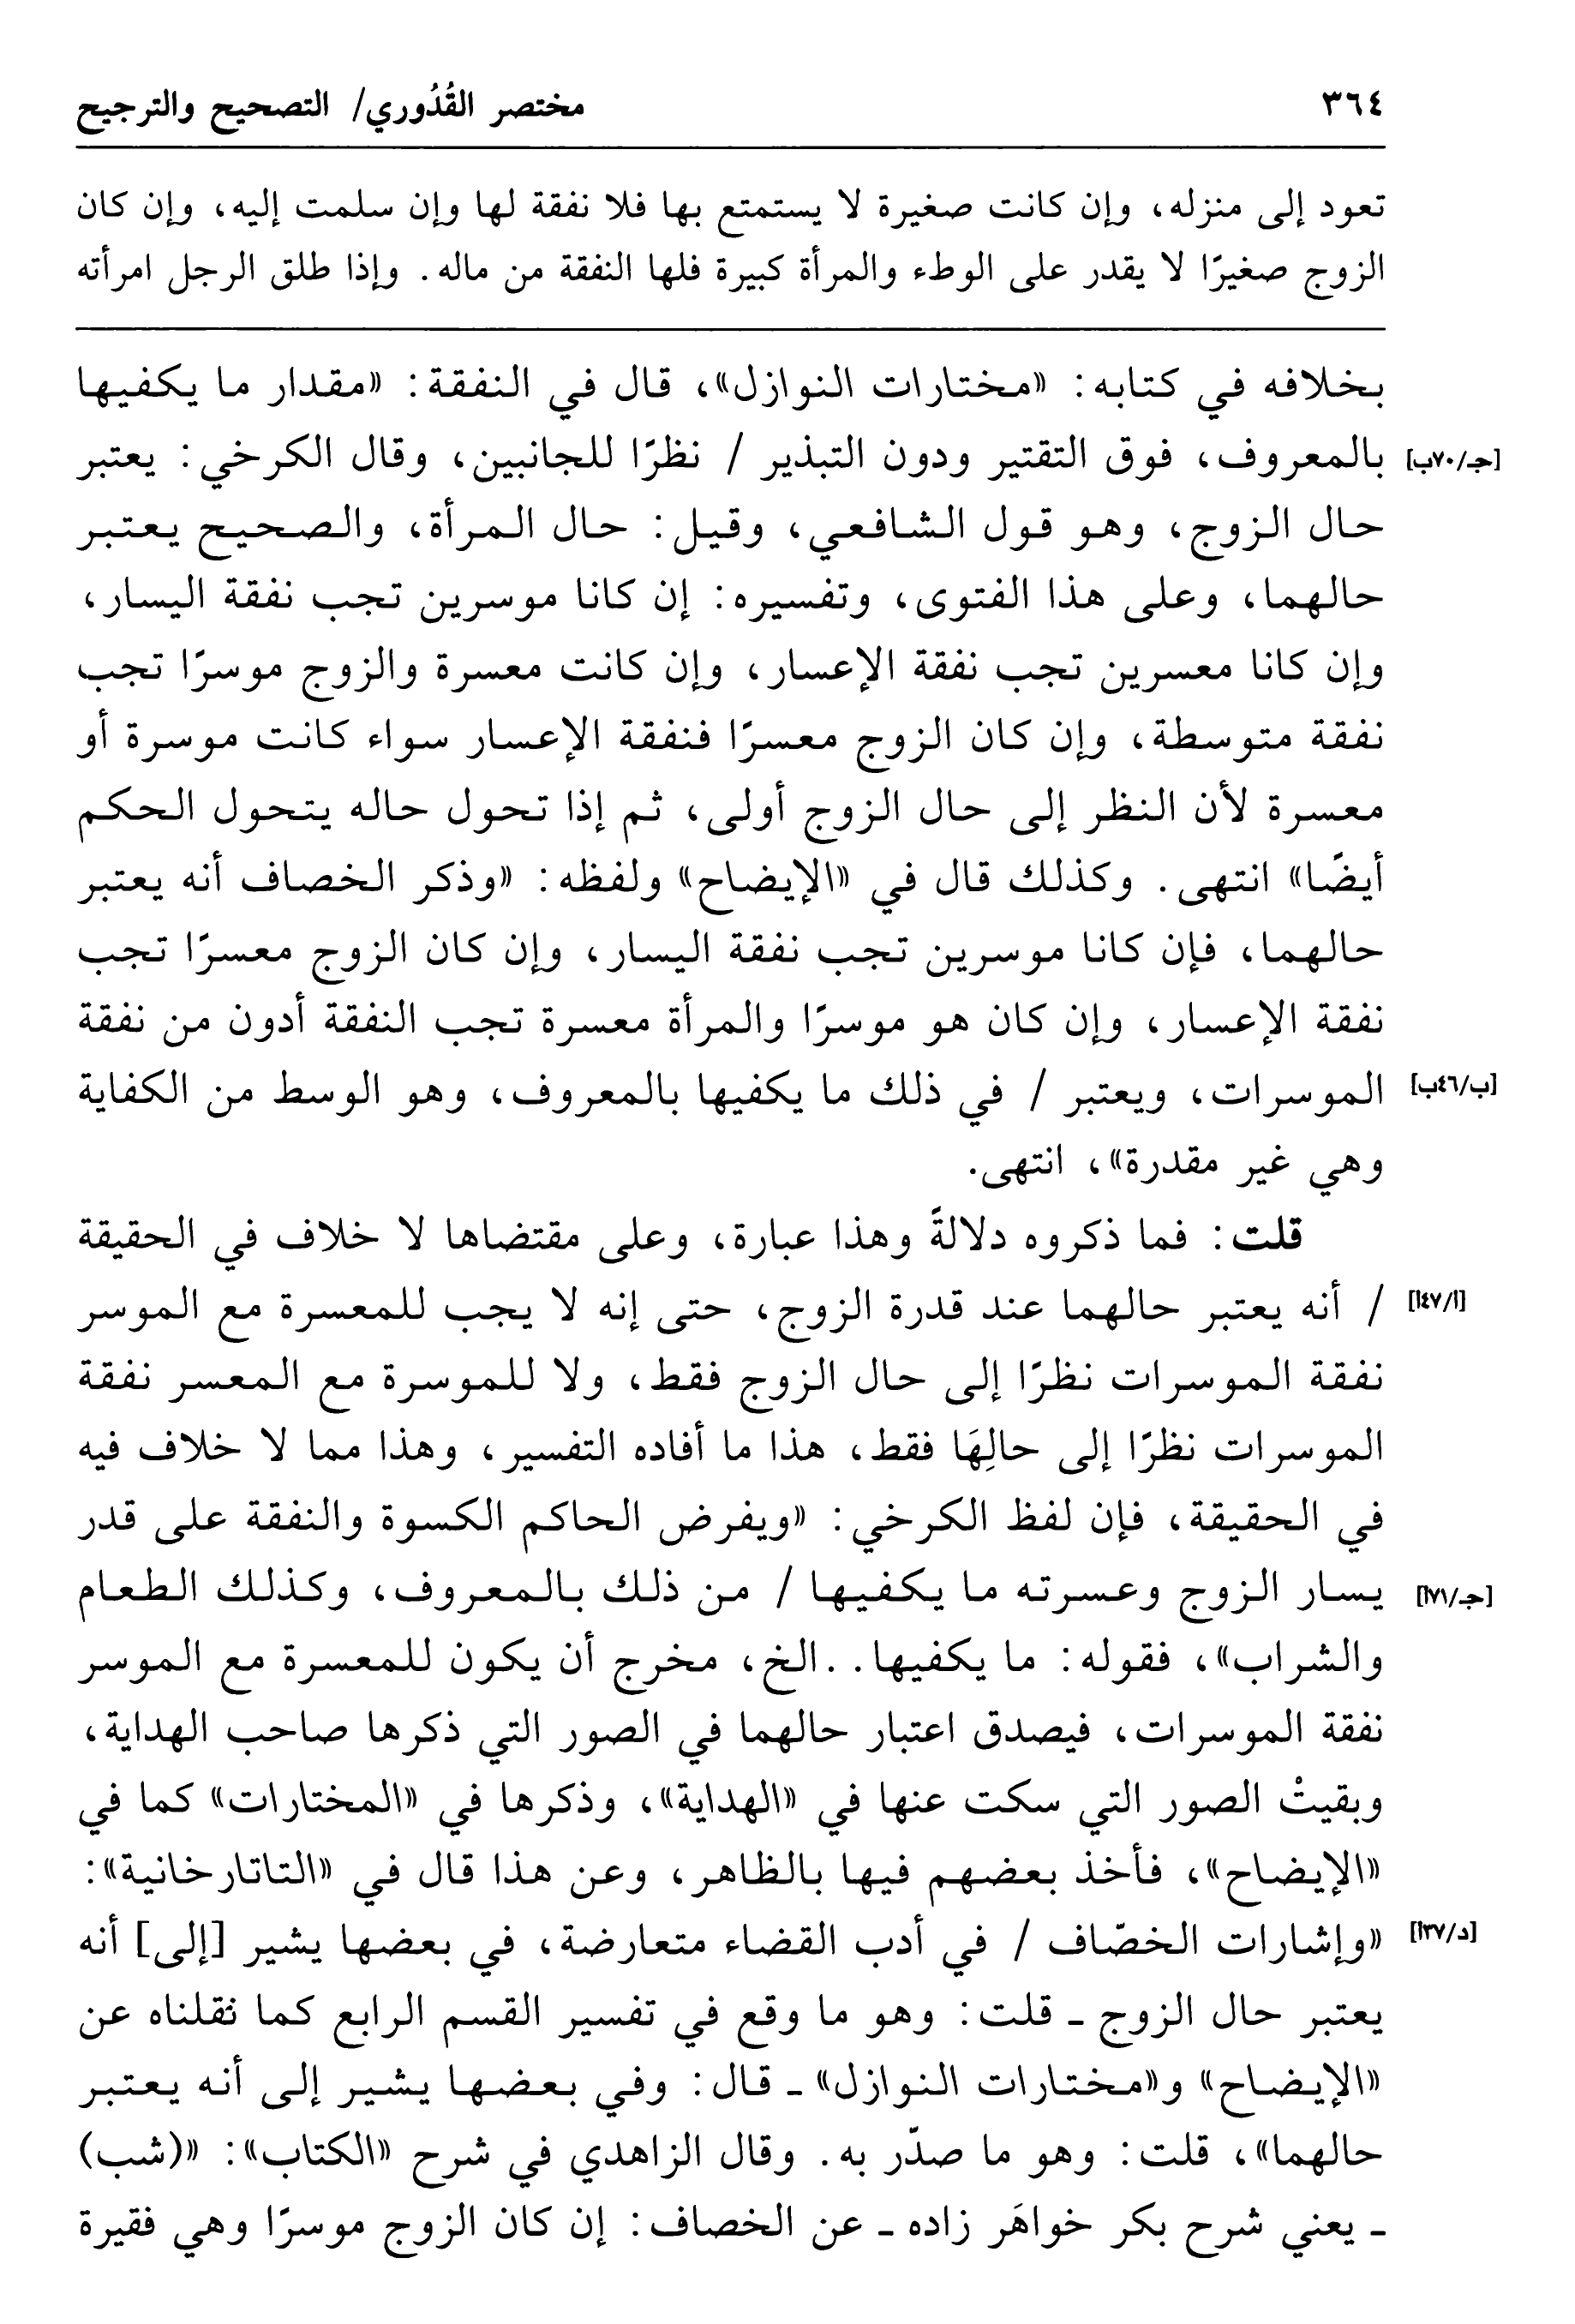 ٣٦٤
مختصر القُدُوري/ التصحيح والترجيح
تعود إلى منزله، وإن كانت صغيرة لا يستمتع بها فلا نفقة لها وإن سلمت إليه، وإن كان
الزوج صغيرًا لا يقدر على الوطء والمرأة كبيرة فلها النفقة من ماله. وإذا طلق الرجل امرأته
بخلافه في كتابه: «مختارات النوازل»، قال في النفقة: «مقدار ما يكفيها
بالمعروف، فوق التقتير ودون التبذير / نظرًا للجانبين، وقال الكرخي: يعتبر
[جـ/٧٠ب]
حال الزوج، وهو قول الشافعي، وقيل: حال المرأة، والصحيح يعتبر
حالهما، وعلى هذا الفتوى، وتفسيره: إن كانا موسرين تجب نفقة اليسار،
وإن كانا معسرين تجب نفقة الإعسار، وإن كانت معسرة والزوج موسرًا تجب
نفقة متوسطة، وإن كان الزوج معسرًا فنفقة الإعسار سواء كانت موسرة أو
معسرة لأن النظر إلى حال الزوج أولى، ثم إذا تحول حاله يتحول الحكم
أيضًا» انتهى. وكذلك قال في «الإيضاح» ولفظه: «وذكر الخصاف أنه يعتبر
حالهما، فإن كانا موسرين تجب نفقة اليسار، وإن كان الزوج معسرًا تجب
نفقة الإعسار، وإن كان هو موسرًا والمرأة معسرة تجب النفقة أدون من نفقة
الموسرات، ويعتبر / في ذلك ما يكفيها بالمعروف، وهو الوسط من الكفاية
[ب/٤٦ب]
وهي غير مقدرة»، انتهى.
قلت: فما ذكروه دلالةً وهذا عبارة، وعلى مقتضاها لا خلاف في الحقيقة
/ أنه يعتبر حالهما عند قدرة الزوج، حتى إنه لا يجب للمعسرة مع الموسر
[أ/٤٧أ]
نفقة الموسرات نظرًا إلى حال الزوج فقط، ولا للموسرة مع المعسر نفقة
الموسرات نظرًا إلى حالِهَا فقط، هذا ما أفاده التفسير، وهذا مما لا خلاف فيه
في الحقيقة، فإن لفظ الكرخي: «ويفرض الحاكم الكسوة والنفقة على قدر
يسار الزوج وعسرته ما يكفيها / من ذلك بالمعروف، وكذلك الطعام
[جـ/٧١أ]
والشراب»، فقوله: ما يكفيها. .الخ، مخرج أن يكون للمعسرة مع الموسر
نفقة الموسرات، فيصدق اعتبار حالهما في الصور التي ذكرها صاحب الهداية،
وبقيتْ الصور التي سكت عنها في «الهداية»، وذكرها في «المختارات» كما في
«الإيضاح»، فأخذ بعضهم فيها بالظاهر، وعن هذا قال في «التاتارخانية»:
«وإشارات الخصّاف / في أدب القضاء متعارضة، في بعضها يشير [إلى] أنه
[د/٣٧أ]
يعتبر حال الزوج ـ قلت: وهو ما وقع في تفسير القسم الرابع كما نقلناه عن
«الإيضاح» و«مختارات النوازل» ـ قال: وفي بعضها يشير إلى أنه يعتبر
حالهما»، قلت: وهو ما صدّر به. وقال الزاهدي في شرح «الكتاب»: «(شب)
ـ يعني شرح بكر خواهَر زاده ـ عن الخصاف: إن كان الزوج موسرًا وهي فقيرة